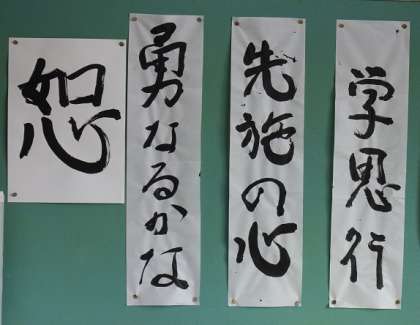 学思行
先施の心
勇なるかな
恕